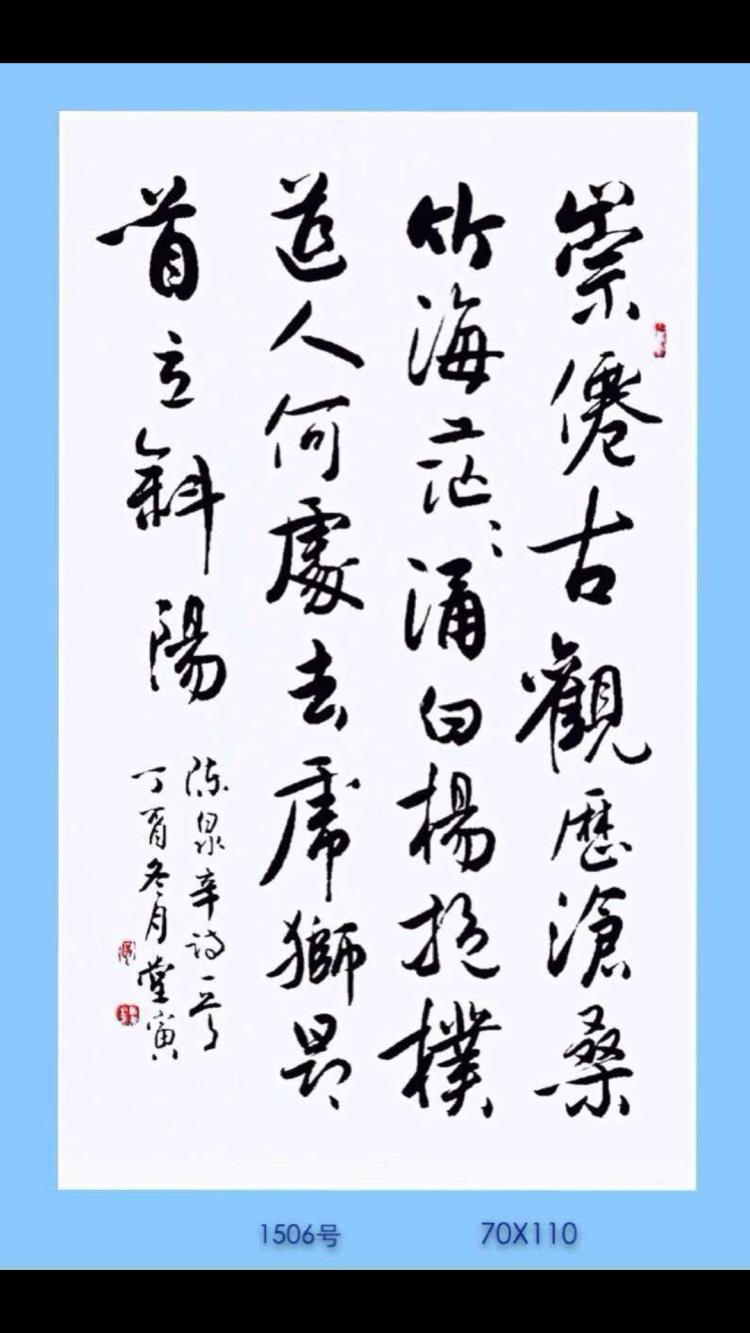 崇僊古觀歷滄桑
竹海茫〻涌白楊抱樸
道人何處去虎獅昂
首立斜陽
陈泉辛诗一首
丁酉冬月堂寅
1506号
70X110